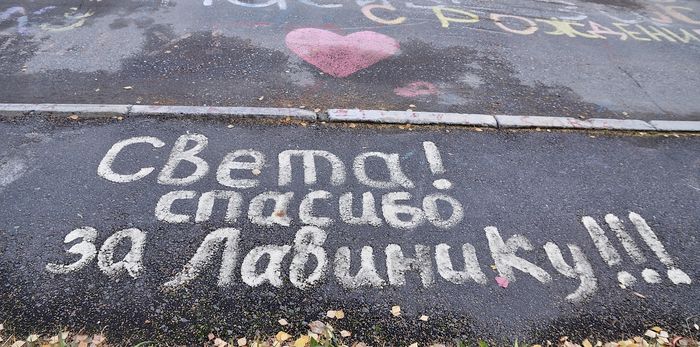 с Рождени
Света!
спасибо
за Лавинику!!!